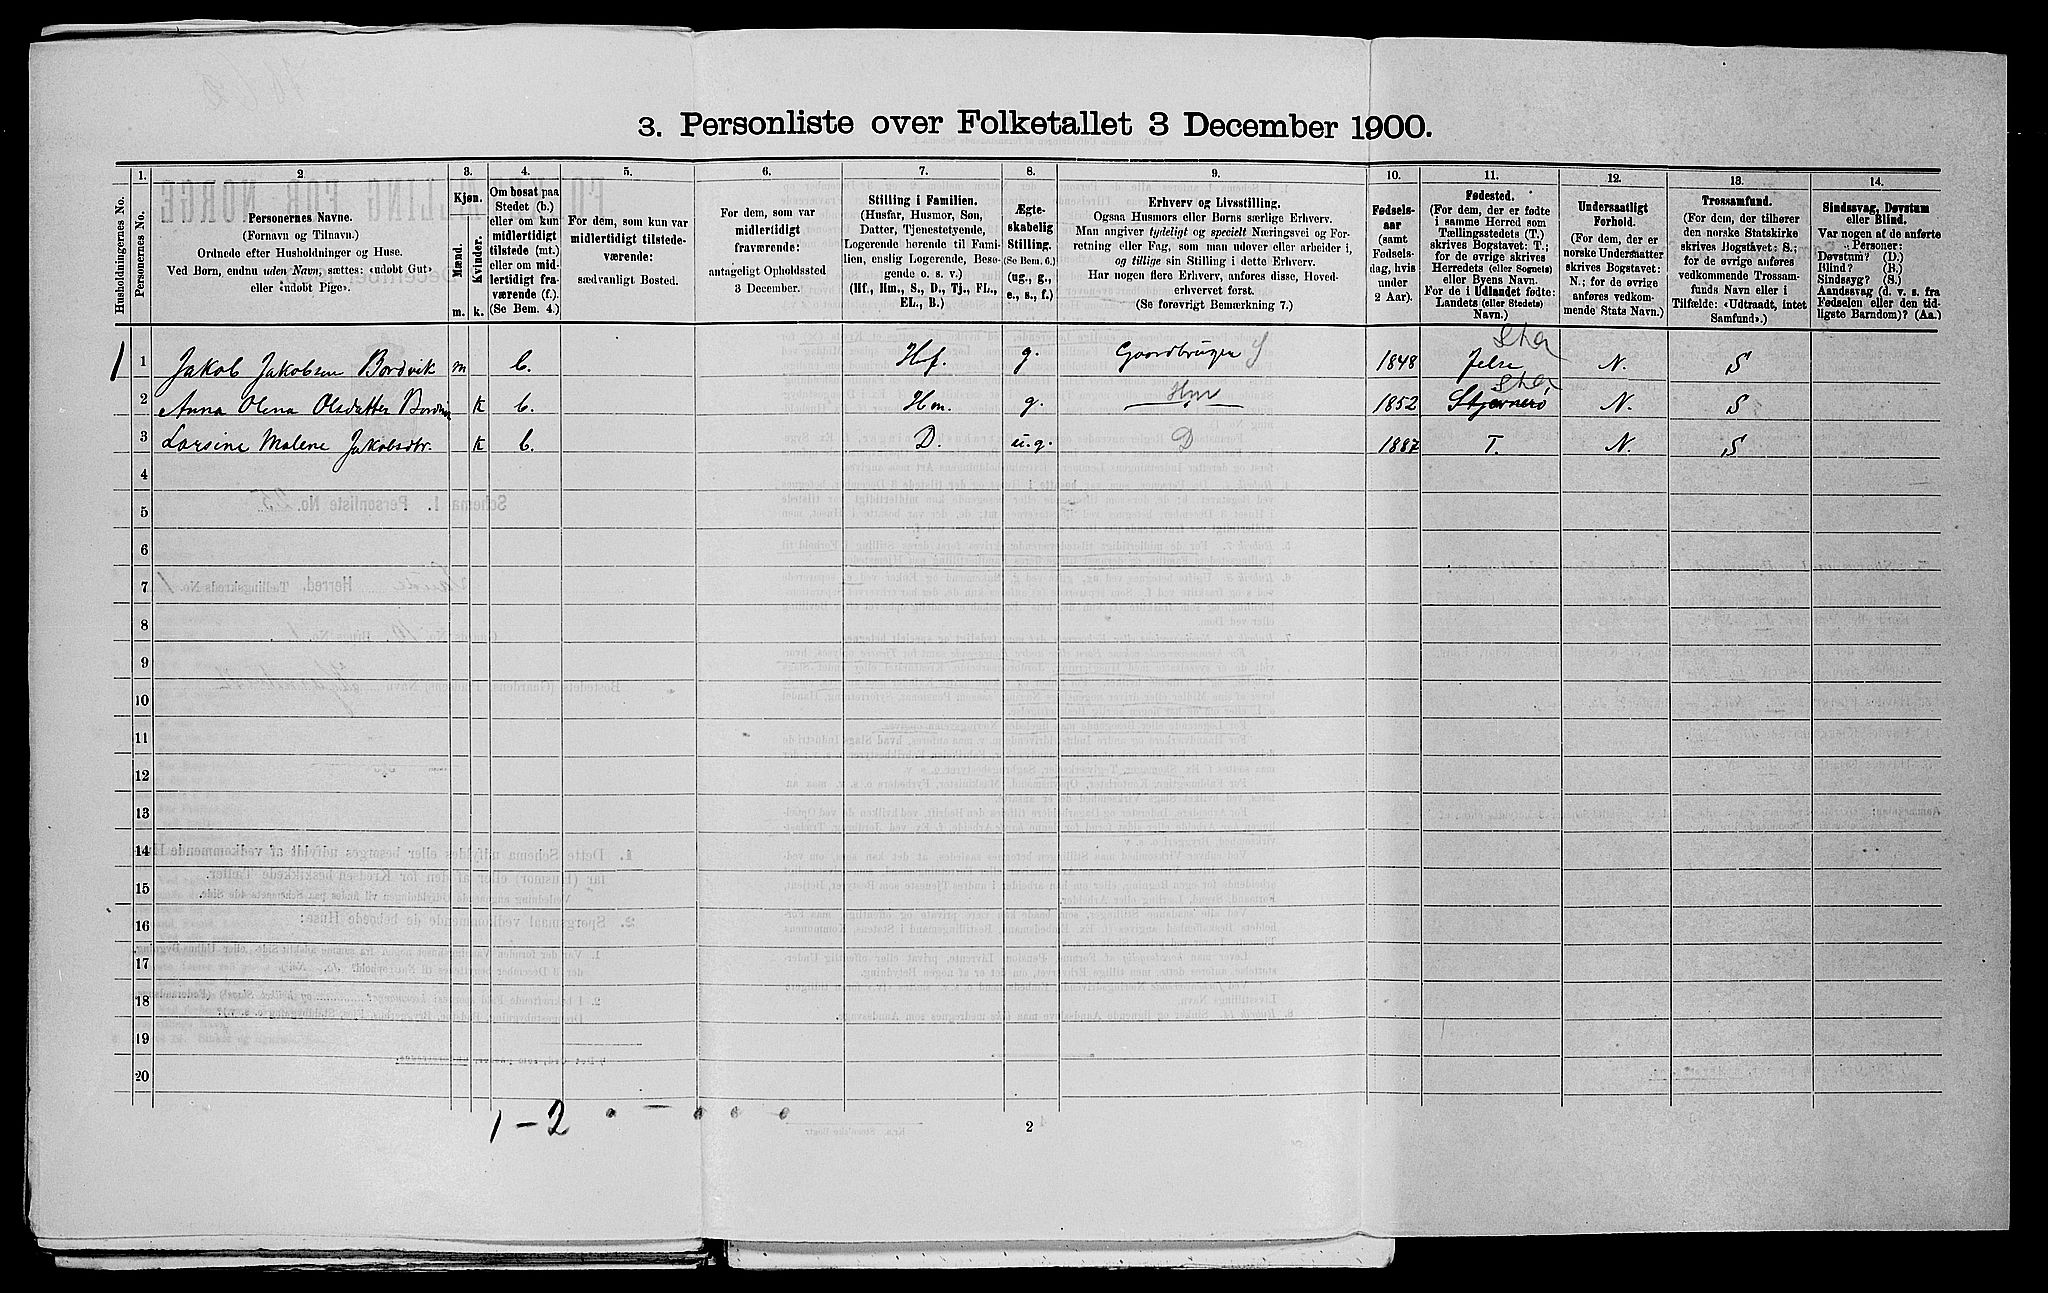 3. Personliste over Folketallet 3 December 1900.
Husholdningernes No.
1.
Personernes No.
2
Personernes Navne.
(Fornavn og Tilnavn.)
Ordnede efter Husholdninger og Huse.
Ved Børn, endnu uden Navn, sættes: «udøbt Gut»
eller «udøbt Pige».
3.
Kjøn.
Mænd.
Kvinder.
m. k.
4.
Om bosat paa
Stedet (b.)
eller om kun
midlertidigt
tilstede (mt.)
eller om mid-
lertidigt fra-
værende (f.)
(Se Bem. 4.)
5.
For dem, som kun var
midlertidigt tilstede-
værende:
sædvanligt Bosted.
6.
For dem, som var
midlertidigt
fraværende:
antageligt Opholdssted
3 December.
7.
Stilling i Familien.
(Husfar, Husmor, Søn,
Datter, Tjenestetyende,
Logerende hørende til Fami-
lien, enslig Logerende, Besø-
gende o. s. v.)
(Hf., Hm., S., D., Tj., FL.,
EL., B.)
8.
Ægte-
skabelig
Stilling.
(Se Bem. 6.)
(ug., g.,
e., s., f.)
9.
Erhverv og Livsstilling.
Ogsaa Husmors eller Børns særlige Erhverv.
Man angiver tydeligt og specielt Næringsvei og For-
retning eller Fag, som man udøver eller arbeider i,
og tillige sin Stilling i dette Erhverv.
Har nogen flere Erhverv, anføres disse, Hoved-
erhvervet først.
(Se forøvrigt Bemærkning 7.)
10.
Fødsels-
aar
(samt
Fødsels-
dag, hvis
under
2 Aar).
11.
Fødested.
(For dem, der er fødte
i samme Herred som
Tællingsstedets (T.)
skrives Bogstavet: T.;
for de øvrige skrives
Herredets (eller Sognets)
eller Byens Navn.
For de i Udlandet fødte:
Landets (eller Stedets)
Navn.)
12.
Undersaatligt
Forhold.
(For dem, der er
norske Undersaatter
skrives Bogstavet:
N.; for de øvrige
anføres vedkom-
mende Stats Navn.)
13.
Trossamfund.
(For dem, der tilhører
den norske Statskirke
skrives Bogstavet: S.;
for de øvrige anføres
vedkommende Trossam-
funds Navn eller i
Tilfælde: «Udtraadt, intet
Samfund».)
14.
Sindssvag, Døvstum
eller Blind.
Var nogen af de anførte
Personer:
Døvstum? (D.)
Blind? (B.)
Sindssyg? (S.)
Aandssvag (d. v. s. fra
Fødselen eller den tid-
ligste Barndom)? (Aa.)
1 1 Jakob Jakobsen Bordvik m b. Hf. g. Gaardbruger S 1848 Jelse N. S
2 Anna Olena Olsdatter Bordvik k b. Hm. g. Hm 1852 Stjernerø N. S
3 Larsine Malene Jakobsdtr. k b. D. u.g. D 1887 T. N. S
4
5
6
7
8
9
10
11
12
13
14
15
16
17
18
19
20
1 - 2
2